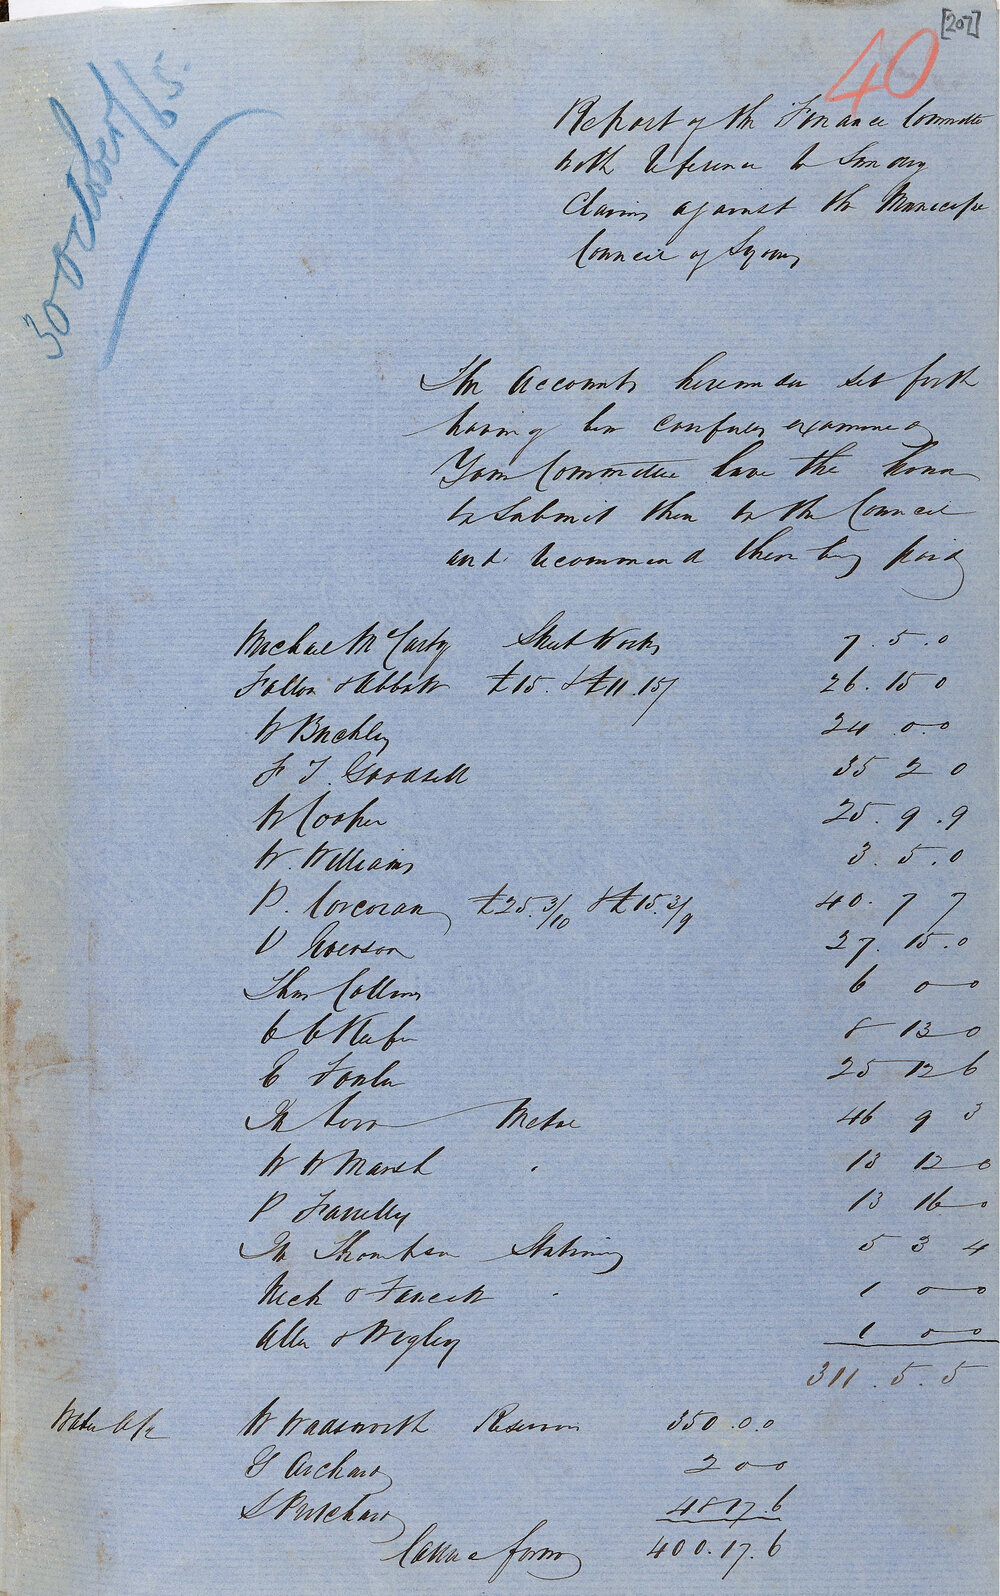 [207]
40
30 October/65.
Report of the Finance Committee
with reference to Sundry
Claims against the Municipal
Council of Sydney
The Accounts hereunder set forth
having been carefully examined
Your Committee have the honor
to submit them to the Council
and recommend there being paid
Michael McCarty Street Works 7. 5. 0
Fallon & Abbott £15. & £11.15/ 26. 15 0
W Buckley 24 0. 0
F T. Goodsell 35 2 0
W Cooper 25. 9. 9
W. Williams 3. 5. 0
P. Corcoran £25.3/10 & £15.3/9 40. 7 7
V Iverson 27. 15. 0
Thos Collins 6 0 0
8 13 0
E Fowler 25 12 6
46 9 3
W W Marsh " 13 12 0
P Farrelly 13 16 0
Thompson Stationery 5 3 4
1 0 0
Allen & Wigley 1 0 0
311. 5. 5
Water W Wadsworth Reservoir 350. 0. 0
G Orchard 2 0 0
S Pritchard 48 17. 6
Carried forward 400. 17. 6